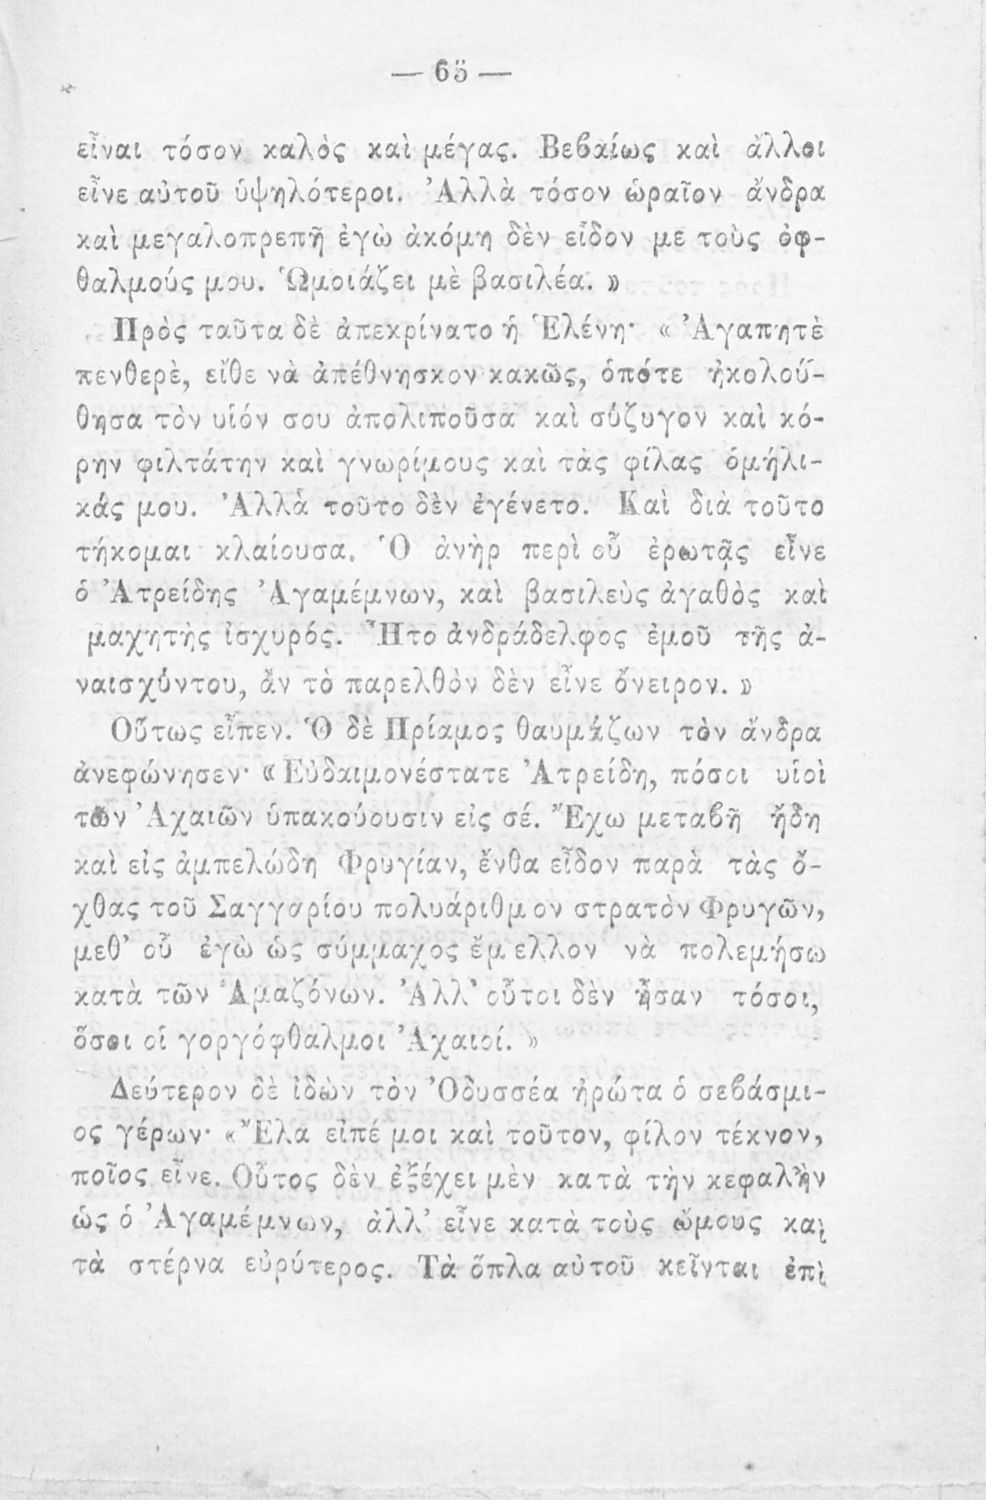 — 65 —
εἶναι τόσον καλὸς καὶ μέγας. Βεβαίως καὶ ἄλλοι
εἶνε αὐτοῦ ὑψηλότεροι. Ἀλλὰ τόσον ὡραῖον ἄνδρα
καὶ μεγαλοπρεπῆ ἐγὼ ἀκόμη δὲν εἶδον με τοὺς ὀφ-
θαλμούς μου. Ὡμοιάζει μὲ βασιλέα. »
Πρὸς ταῦτα δὲ ἀπεκρίνατο ἡ Ἑλένη· « Ἀγαπητὲ
πενθερὲ, εἴθε νὰ ἀπέθνησκον κακῶς, ὁπότε ἠκολού-
θησα τὸν υἱόν σου ἀπολιποῦσα καὶ σύζυγον καὶ κό-
ρην φιλτάτην καὶ γνωρίμους καὶ τὰς φίλας ὁμήλι-
κάς μου. Ἀλλὰ τοῦτο δὲν ἐγένετο. Καὶ διὰ τοῦτο
τήκομαι κλαίουσα. Ὁ ἀνὴρ περὶ οὗ ἐρωτᾷς εἶνε
ὁ Ἀτρείδης Ἀγαμέμνων, καὶ βασιλεὺς ἀγαθὸς καὶ
μαχητὴς ἰσχυρός. Ἦτο ἀνδράδελφος ἐμοῦ τῆς ἀ-
ναισχύντου, ἂν τὸ παρελθὸν δὲν εἶνε ὄνειρον. »
Οὕτως εἶπεν. Ὁ δὲ Πρίαμος θαυμάζων τὸν ἄνδρα
ἀνεφώνησεν· « Εὐδαιμονέστατε Ἀτρείδη, πόσοι υἱοὶ
τῶν Ἀχαιῶν ὑπακούουσιν εἰς σέ. Ἔχω μεταβῆ ἤδη
καὶ εἰς ἀμπελώδη Φρυγίαν, ἔνθα εἶδον παρὰ τὰς ὄ-
χθας τοῦ Σαγγαρίου πολυάριθμον στρατὸν Φρυγῶν,
μεθ’ οὗ ἐγὼ ὡς σύμμαχος ἔμελλον νὰ πολεμήσω
κατὰ τῶν Ἀμαζόνων. Ἀλλ’ οὗτοι δὲν ἦσαν τόσοι,
ὅσοι οἱ γοργόφθαλμοι Ἀχαιοί. »
Δεύτερον δὲ ἰδὼν τὸν Ὀδυσσέα ἠρώτα ὁ σεβάσμι-
ος γέρων· « Ἔλα εἰπέ μοι καὶ τοῦτον, φίλον τέκνον,
ποῖος εἶνε. Οὗτος δὲν ἐξέχει μὲν κατὰ τὴν κεφαλὴν
ὡς ὁ Ἀγαμέμνων, ἀλλ’ εἶνε κατὰ τοὺς ὤμους καὶ
τὰ στέρνα εὐρύτερος. Τὰ ὅπλα αὐτοῦ κεῖνται ἐπὶ